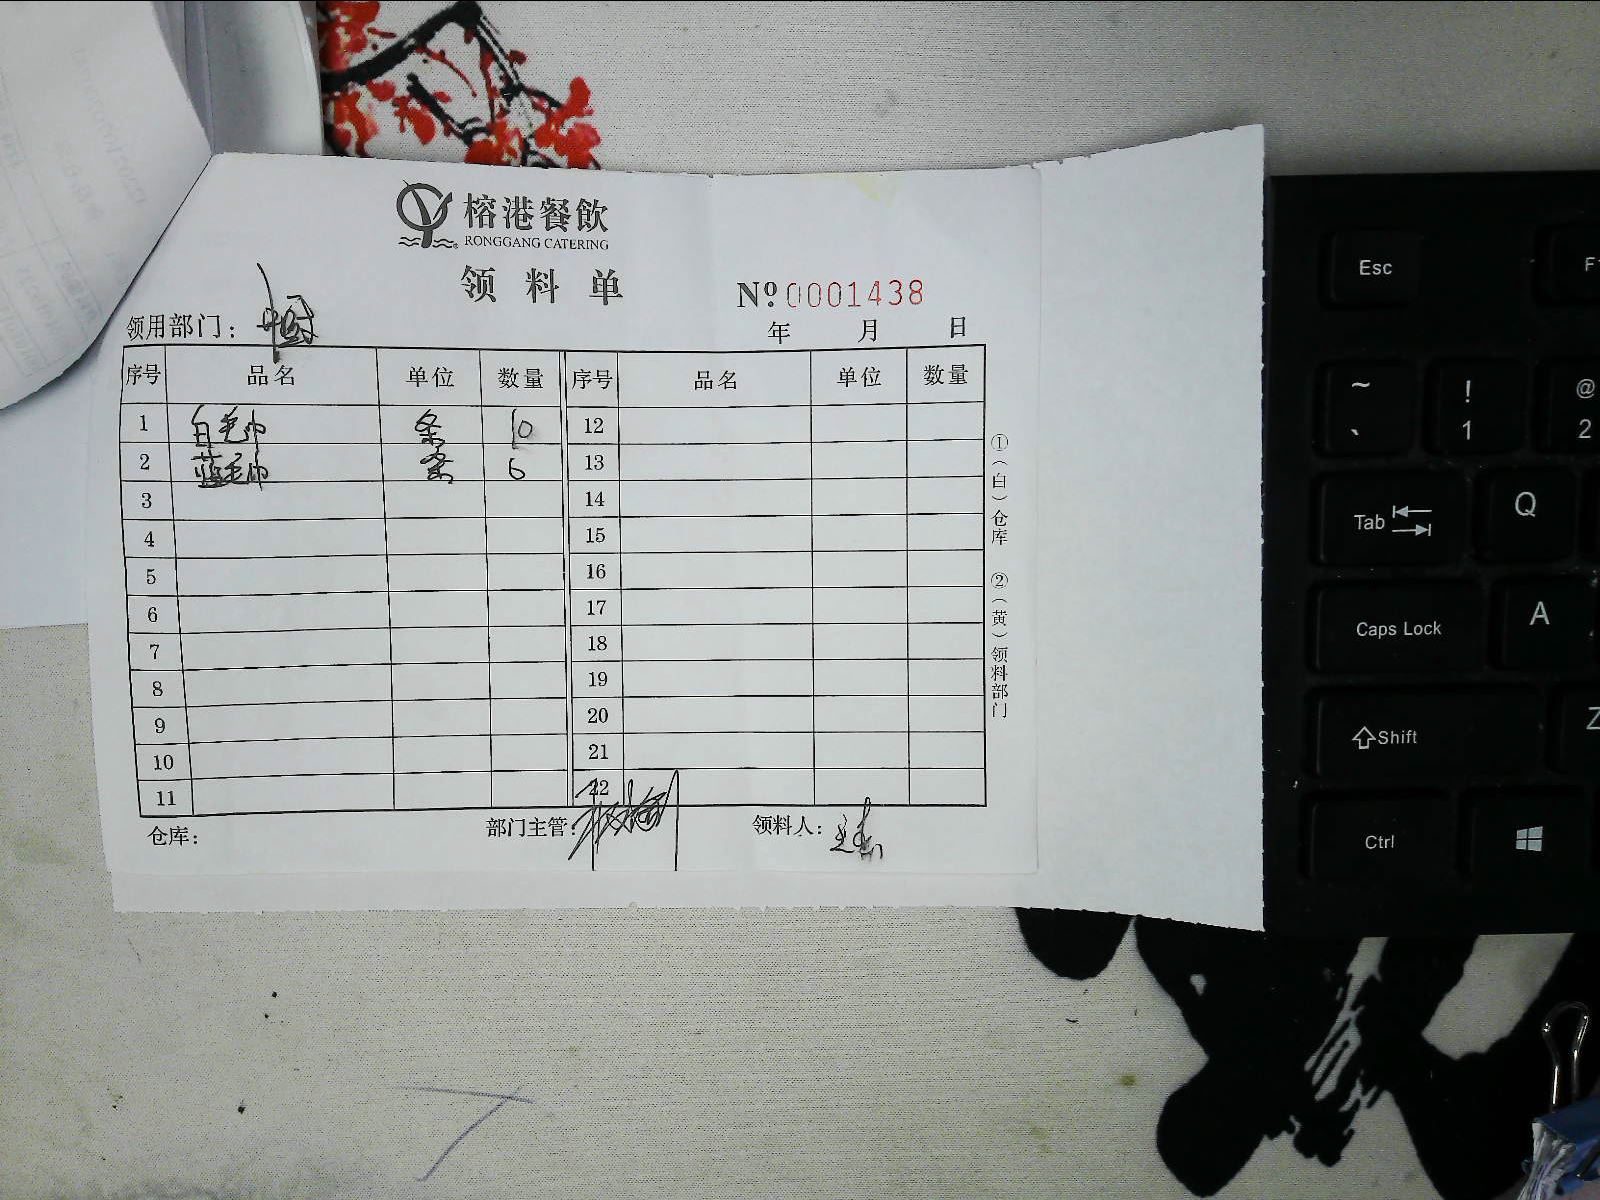 榕港餐飲
RONGGANG CATERING
领料单
Nº 0001438
领用部门：中厨
年 月 日
序号 品名 单位 数量 序号 品名 单位 数量
1 白毛巾 条 10 12
2 蓝毛巾 条 6 13
3 14
4 15
5 16
6 17
7 18
8 19
9 20
10 21
11 22
①（白）仓库 ②（黄）领料部门
仓库： 部门主管： 领料人：
Esc
~ ! @
、 1 2
Tab Q
Caps Lock A
Shift Z
Ctrl